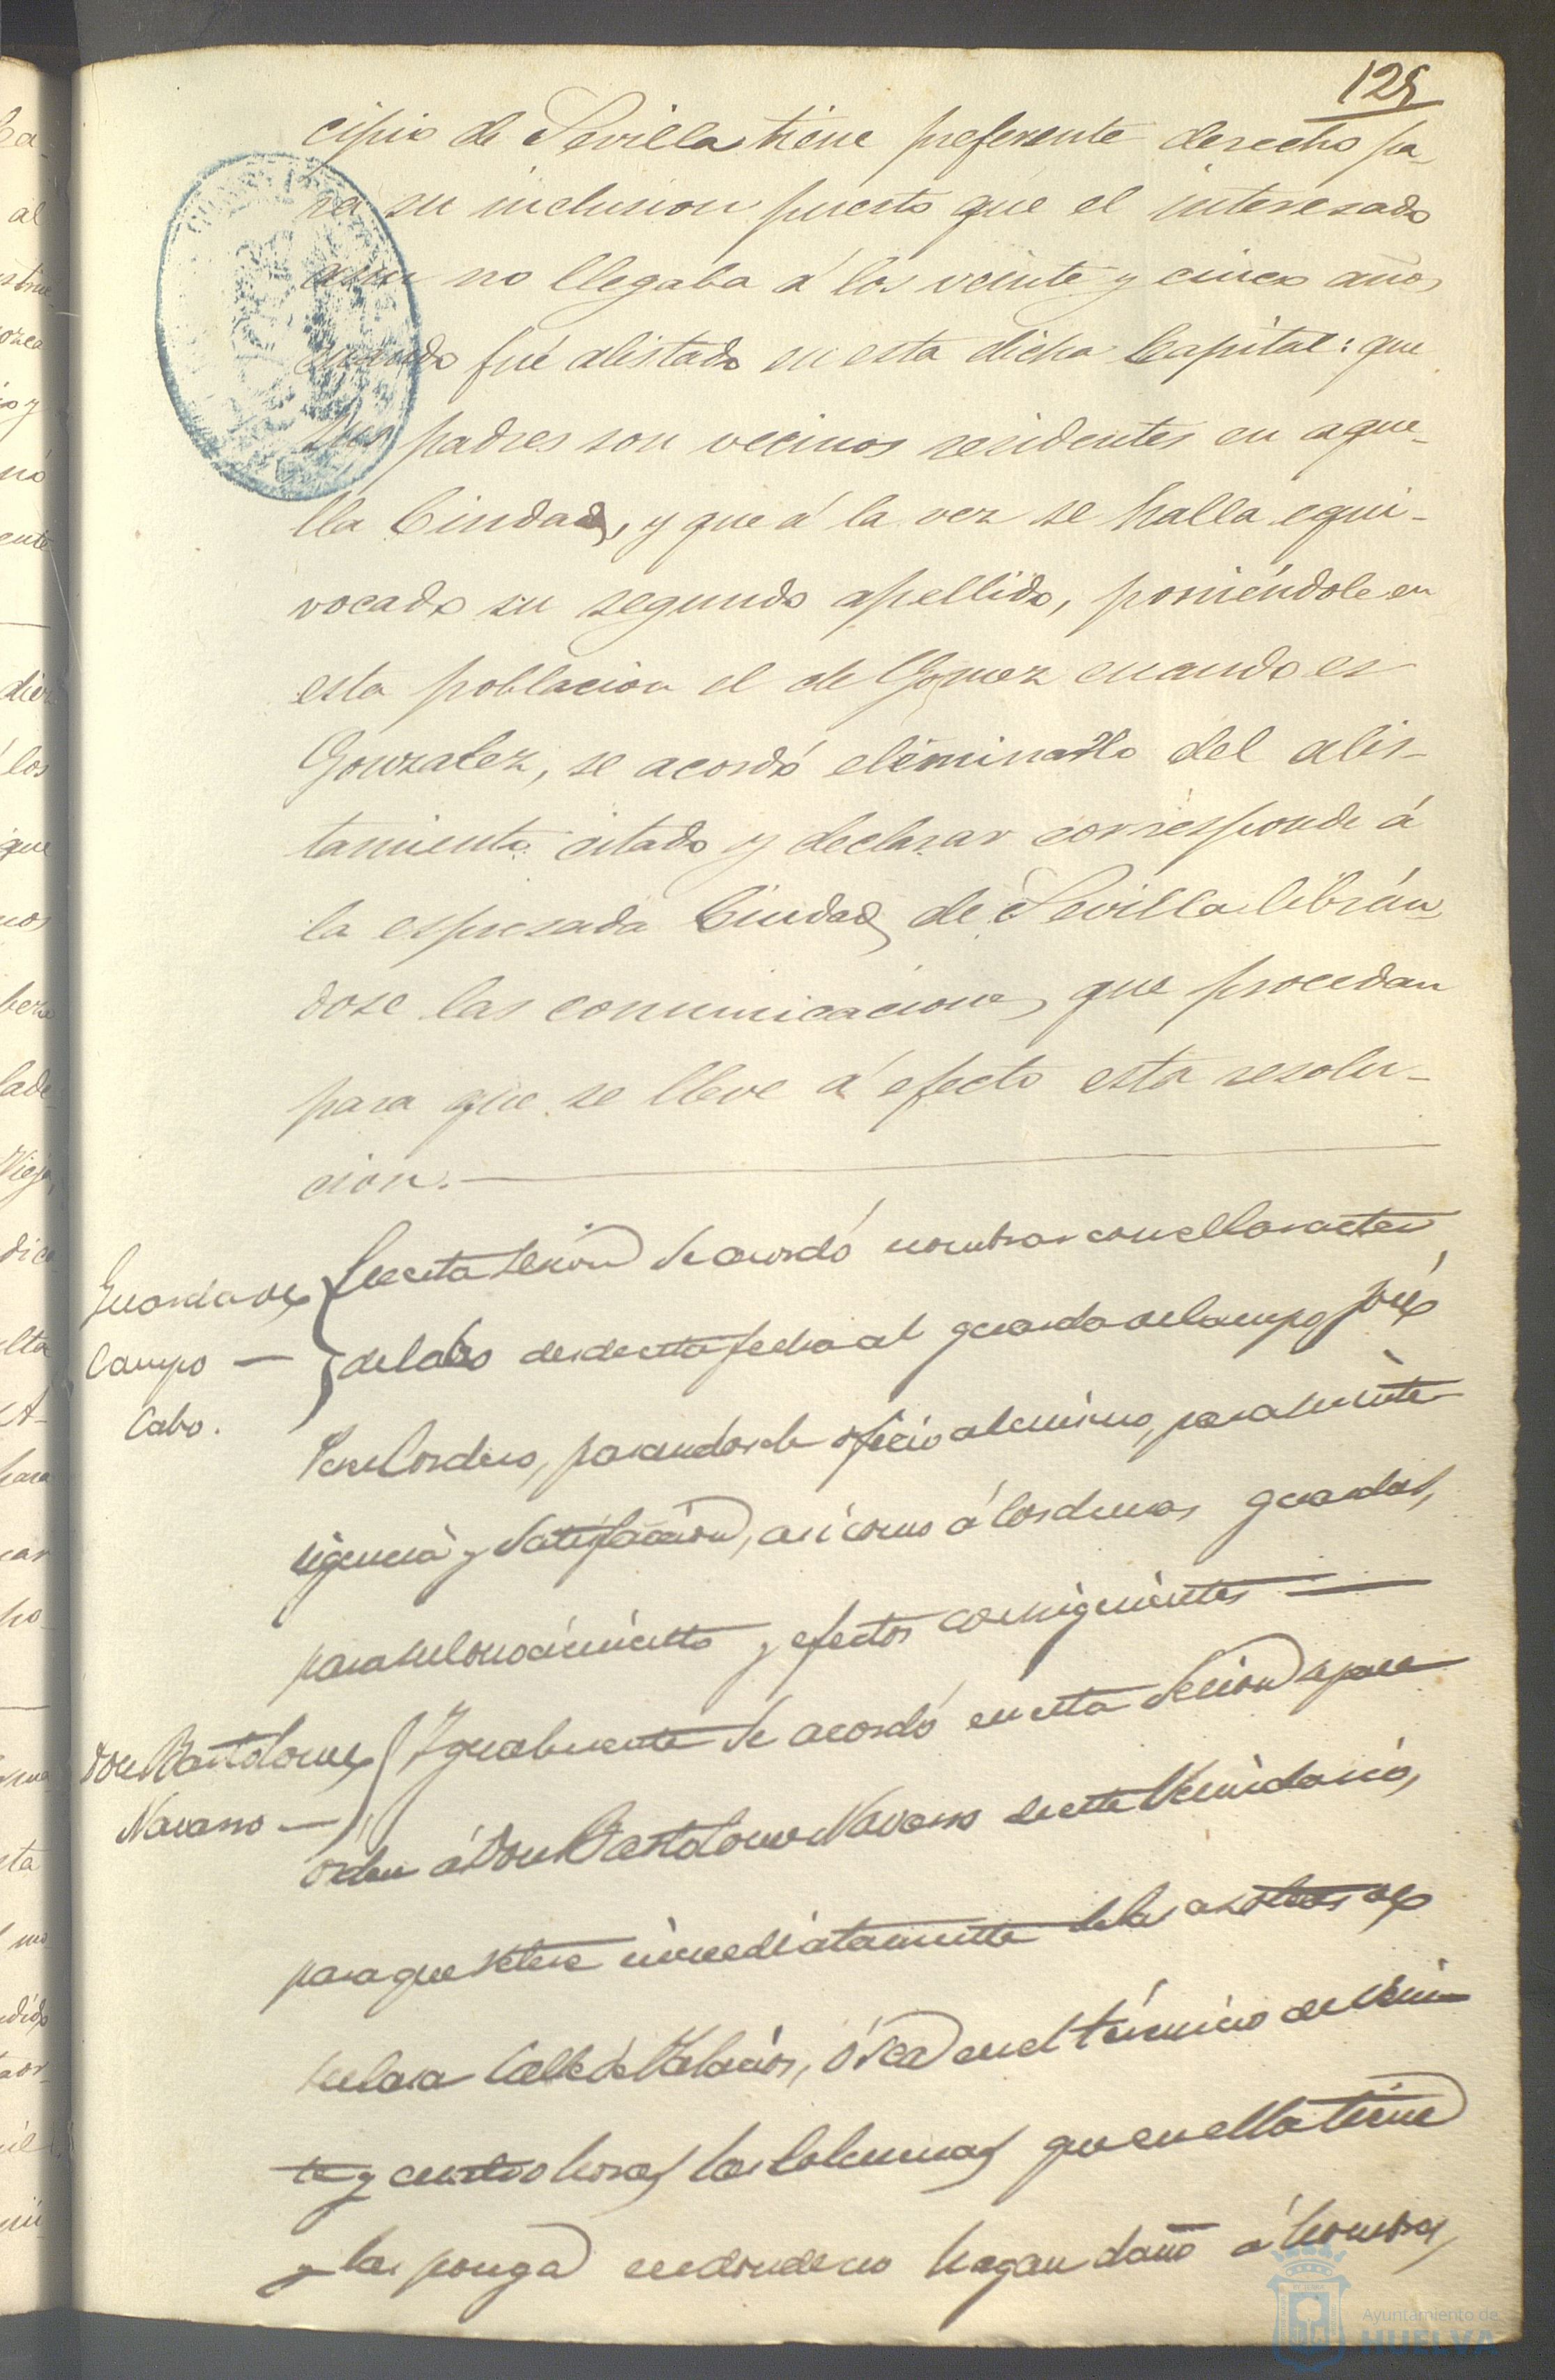 125
cipio de Sevilla tiene preferente derecho pa-
ra su inclusion puesto que el interesado
aun no llegaba á los veinte y cinco años
cuando fué alistado en esta dicha Capital: que
sus padres son vecinos residentes en aque-
lla Ciudad, y que á la vez se halla equi-
vocado su segundo apellido, poniéndole en
esta poblacion el de Gomez cuando es
Gonzalez, se acordó eliminarlo del alis-
tamiento citado y declarar corresponde á
la espresada Ciudad de Sevilla librán
dose las comunicaciones que procedan
para que se lleve á efecto esta resolu-
cion.
Guarda de
Campo —
Cabo.
En esta sesion se acordó nombrar con el caracter
de Cabo desde esta fecha al guarda de campo José
Cordero, pasandosele oficio al mismo, para su inte-
ligencia y satisfaccion, asi como á los demas guardas,
para su conocimiento y efectos consiguientes
Don Bartolome
Navarro —
Igualmente se acordó en esta sesion se pase
orden á Don Bartolome Navarro de este Vecindario,
para que retire inmediatamente de la
su casa Calle de Palacios, ó sea en el término de vein-
te y cuatro horas las Columnas que en ella tiene
y las ponga en donde no hagan daño á hombres,
Ayuntamiento de
HUELVA